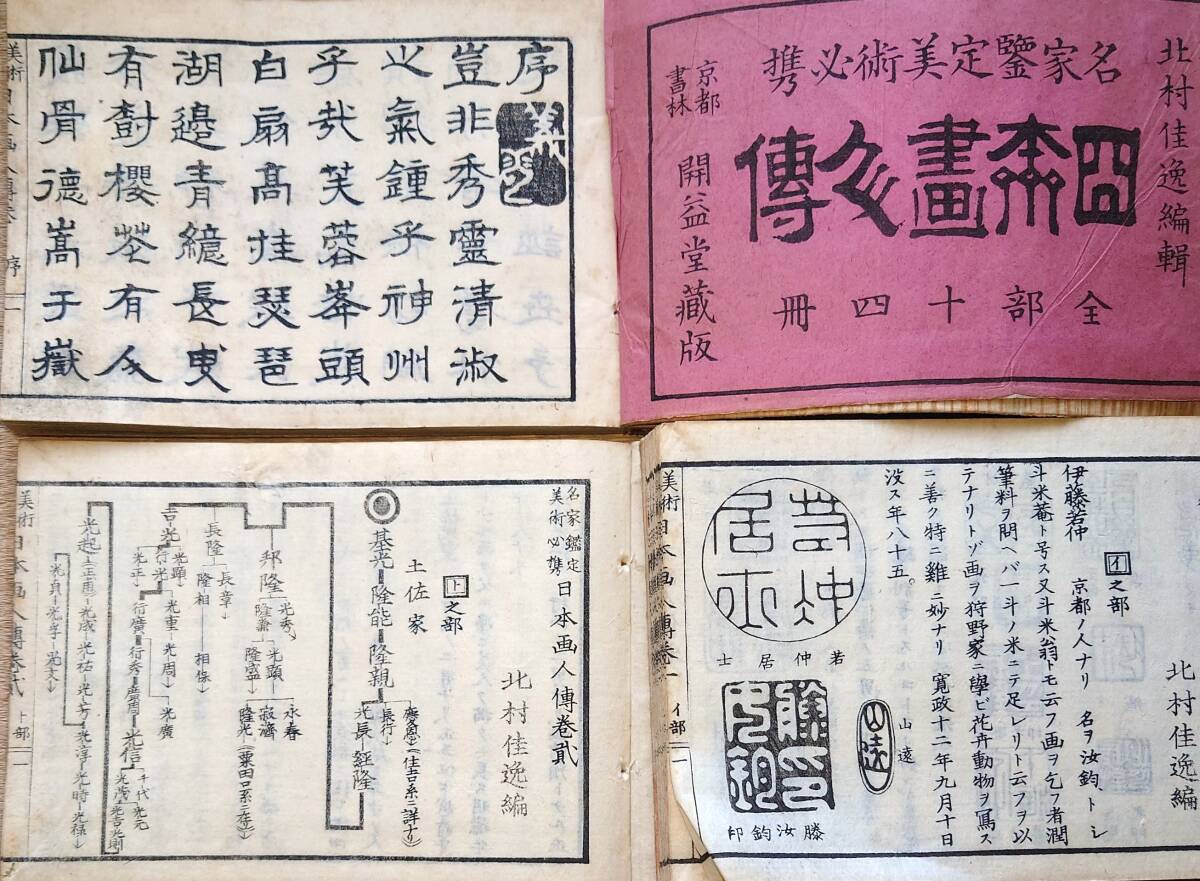 北村佳逸編輯
名家鑒定美術必携
日本畫人傳
全部十四冊
京都
書林
開益堂藏版
序
豈非秀靈清淑
之氣鍾乎神州
乎哉芙蓉峯頭
白扇高挂琵琶
湖邊青繐長曳
有對櫻花有人
仙骨德嵩于嶽
美術日本画人傳卷
序
一
北村佳逸編
イ之部
伊藤若仲 京都ノ人ナリ 名ヲ汝鈞、トシ
斗米菴ト号ス又斗米翁トモ云フ画ヲ乞フ者潤
筆料ヲ問ヘバ一斗ノ米ニテ足レリト云フヲ以
テナリトゾ画ヲ狩野家ニ學ビ花卉動物ヲ冩ス
ニ善ク特ニ雞ニ妙ナリ 寛政十二年九月十日
没ス年八十五。
若仲居士
若仲居士
山遠
藤汝鈞印
滕汝鈞印
美術日本画人傳卷一
イ部
一
名家鑑定
美術必携
日本画人傳卷貳
北村佳逸編
ト之部
土佐家
基光―隆能―隆親
長行
光長―經隆
(住吉系ニ詳ナリ)
邦隆
光秀
隆兼
光顯
隆盛
永春
寂濟
隆光
(粟田口系ニ在リ)
長隆
長章
隆相
相保
吉光
光顯
行光
光正
光重―光周
行廣―行秀―廣周―光信
光廣
千代
光元
光茂
光吉
光則
光起
光成―光祐―光芳―光淳―光時―光禄
光貞―光孚―光文
美術日本画人傳卷貳
ト部
一